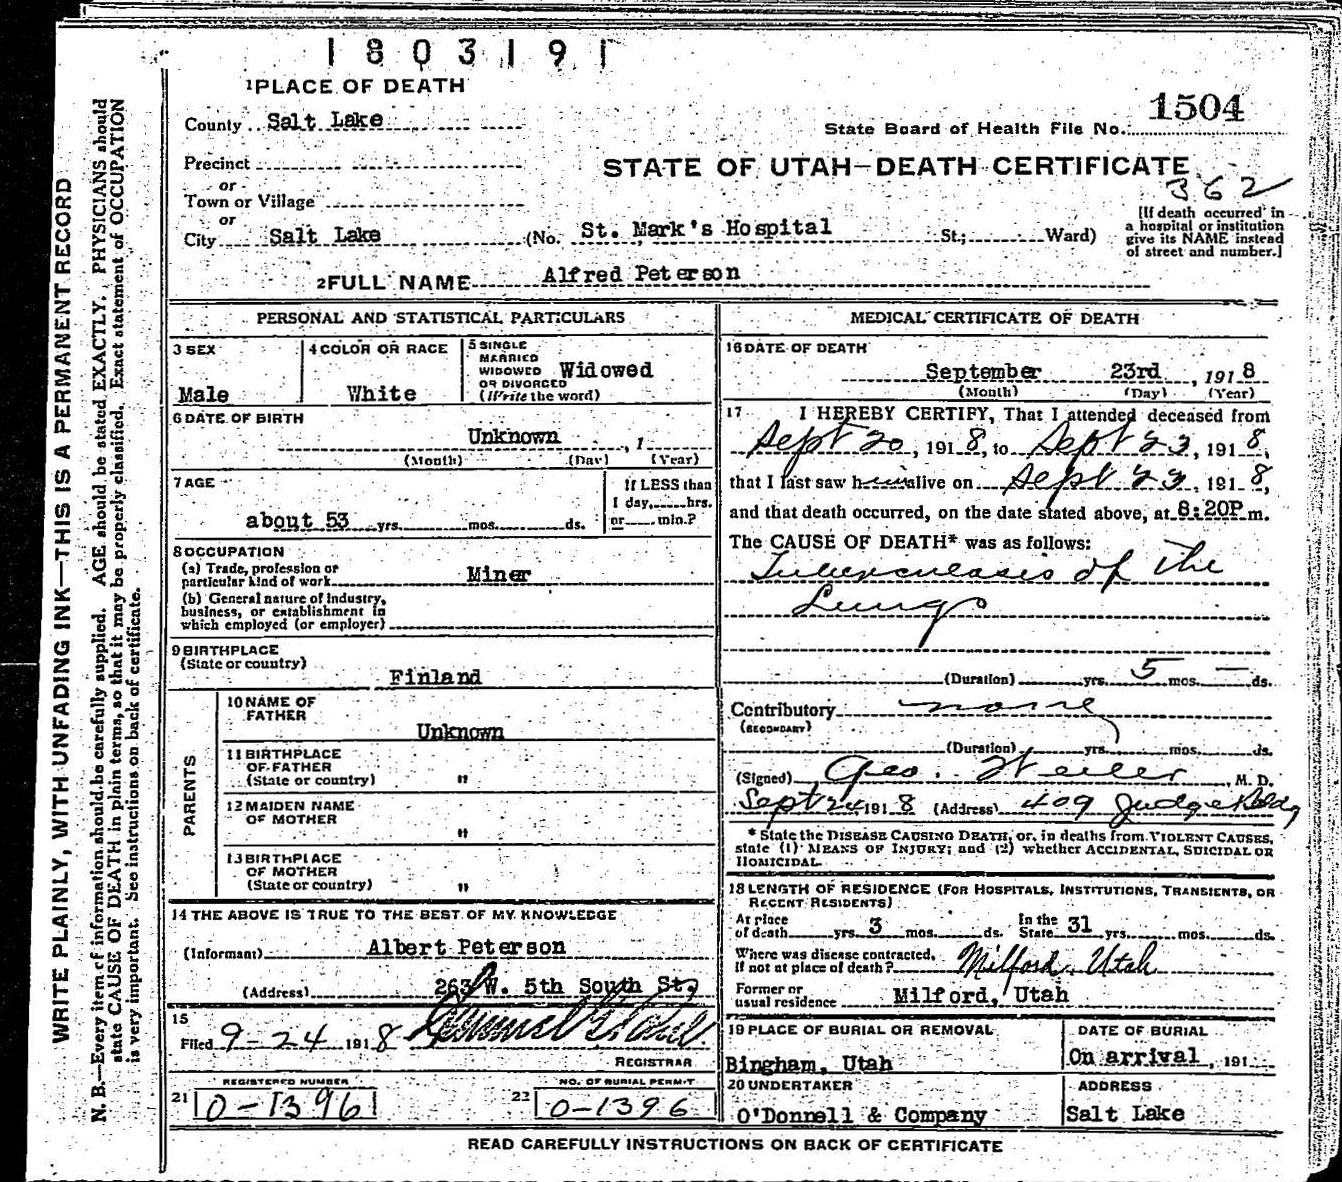 1803191
1 PLACE OF DEATH
1504
County Salt Lake
State Board of Health File No.
Precinct
STATE OF UTAH—DEATH CERTIFICATE
or
362
Town or Village
or
City Salt Lake (No. St. Mark's Hospital St.; Ward)
[If death occurred in
a hospital or institution
give its NAME instead
of street and number.]
2 FULL NAME Alfred Peterson
PERSONAL AND STATISTICAL PARTICULARS
3 SEX
Male
4 COLOR OR RACE
White
5 SINGLE
MARRIED
WIDOWED
OR DIVORCED
(Write the word)
Widowed
6 DATE OF BIRTH
Unknown , 1
(Month) (Day) (Year)
7 AGE
about 53 yrs. mos. ds.
If LESS than
1 day, hrs.
or min.?
8 OCCUPATION
(a) Trade, profession or
particular kind of work Miner
(b) General nature of industry,
business, or establishment in
which employed (or employer)
9 BIRTHPLACE
(State or country)
Finland
PARENTS
10 NAME OF
FATHER
Unknown
11 BIRTHPLACE
OF FATHER
(State or country) "
12 MAIDEN NAME
OF MOTHER
"
13 BIRTHPLACE
OF MOTHER
(State or country) "
14 THE ABOVE IS TRUE TO THE BEST OF MY KNOWLEDGE
(Informant) Albert Peterson
(Address) 263 W. 5th South St.
15
Filed 9-24 1918
REGISTRAR
REGISTERED NUMBER
21 0-1396
NO. OF BURIAL PERMIT
22 0-1396
MEDICAL CERTIFICATE OF DEATH
16 DATE OF DEATH
September 23rd , 1918
(Month) (Day) (Year)
17 I HEREBY CERTIFY, That I attended deceased from
Sept 20, 1918, to Sept 23, 1918,
that I last saw him alive on Sept 23, 1918,
and that death occurred, on the date stated above, at 8:20P m.
The CAUSE OF DEATH* was as follows:
Tuberculosis of the
Lungs
(Duration) yrs. 5 mos. — ds.
Contributory none
(SECONDARY)
(Duration) yrs. mos. ds.
(Signed) Geo. , M. D.
Sept 24 1918 (Address) 409 Judge Bldg
* State the DISEASE CAUSING DEATH, or, in deaths from VIOLENT CAUSES,
state (1) MEANS OF INJURY; and (2) whether ACCIDENTAL, SUICIDAL OR
HOMICIDAL.
18 LENGTH OF RESIDENCE (FOR HOSPITALS, INSTITUTIONS, TRANSIENTS, OR
RECENT RESIDENTS)
At place
of death yrs. 3 mos. ds.
In the
State 31 yrs. mos. ds.
Where was disease contracted,
If not at place of death? Milford, Utah
Former or
usual residence Milford, Utah
19 PLACE OF BURIAL OR REMOVAL
Bingham, Utah
DATE OF BURIAL
On arrival , 191
20 UNDERTAKER
O'Donnell & Company
ADDRESS
Salt Lake
READ CAREFULLY INSTRUCTIONS ON BACK OF CERTIFICATE
WRITE PLAINLY, WITH UNFADING INK—THIS IS A PERMANENT RECORD
N. B.—Every item of information should be carefully supplied. AGE should be stated EXACTLY. PHYSICIANS should
state CAUSE OF DEATH in plain terms, so that it may be properly classified. Exact statement of OCCUPATION
is very important. See instructions on back of certificate.